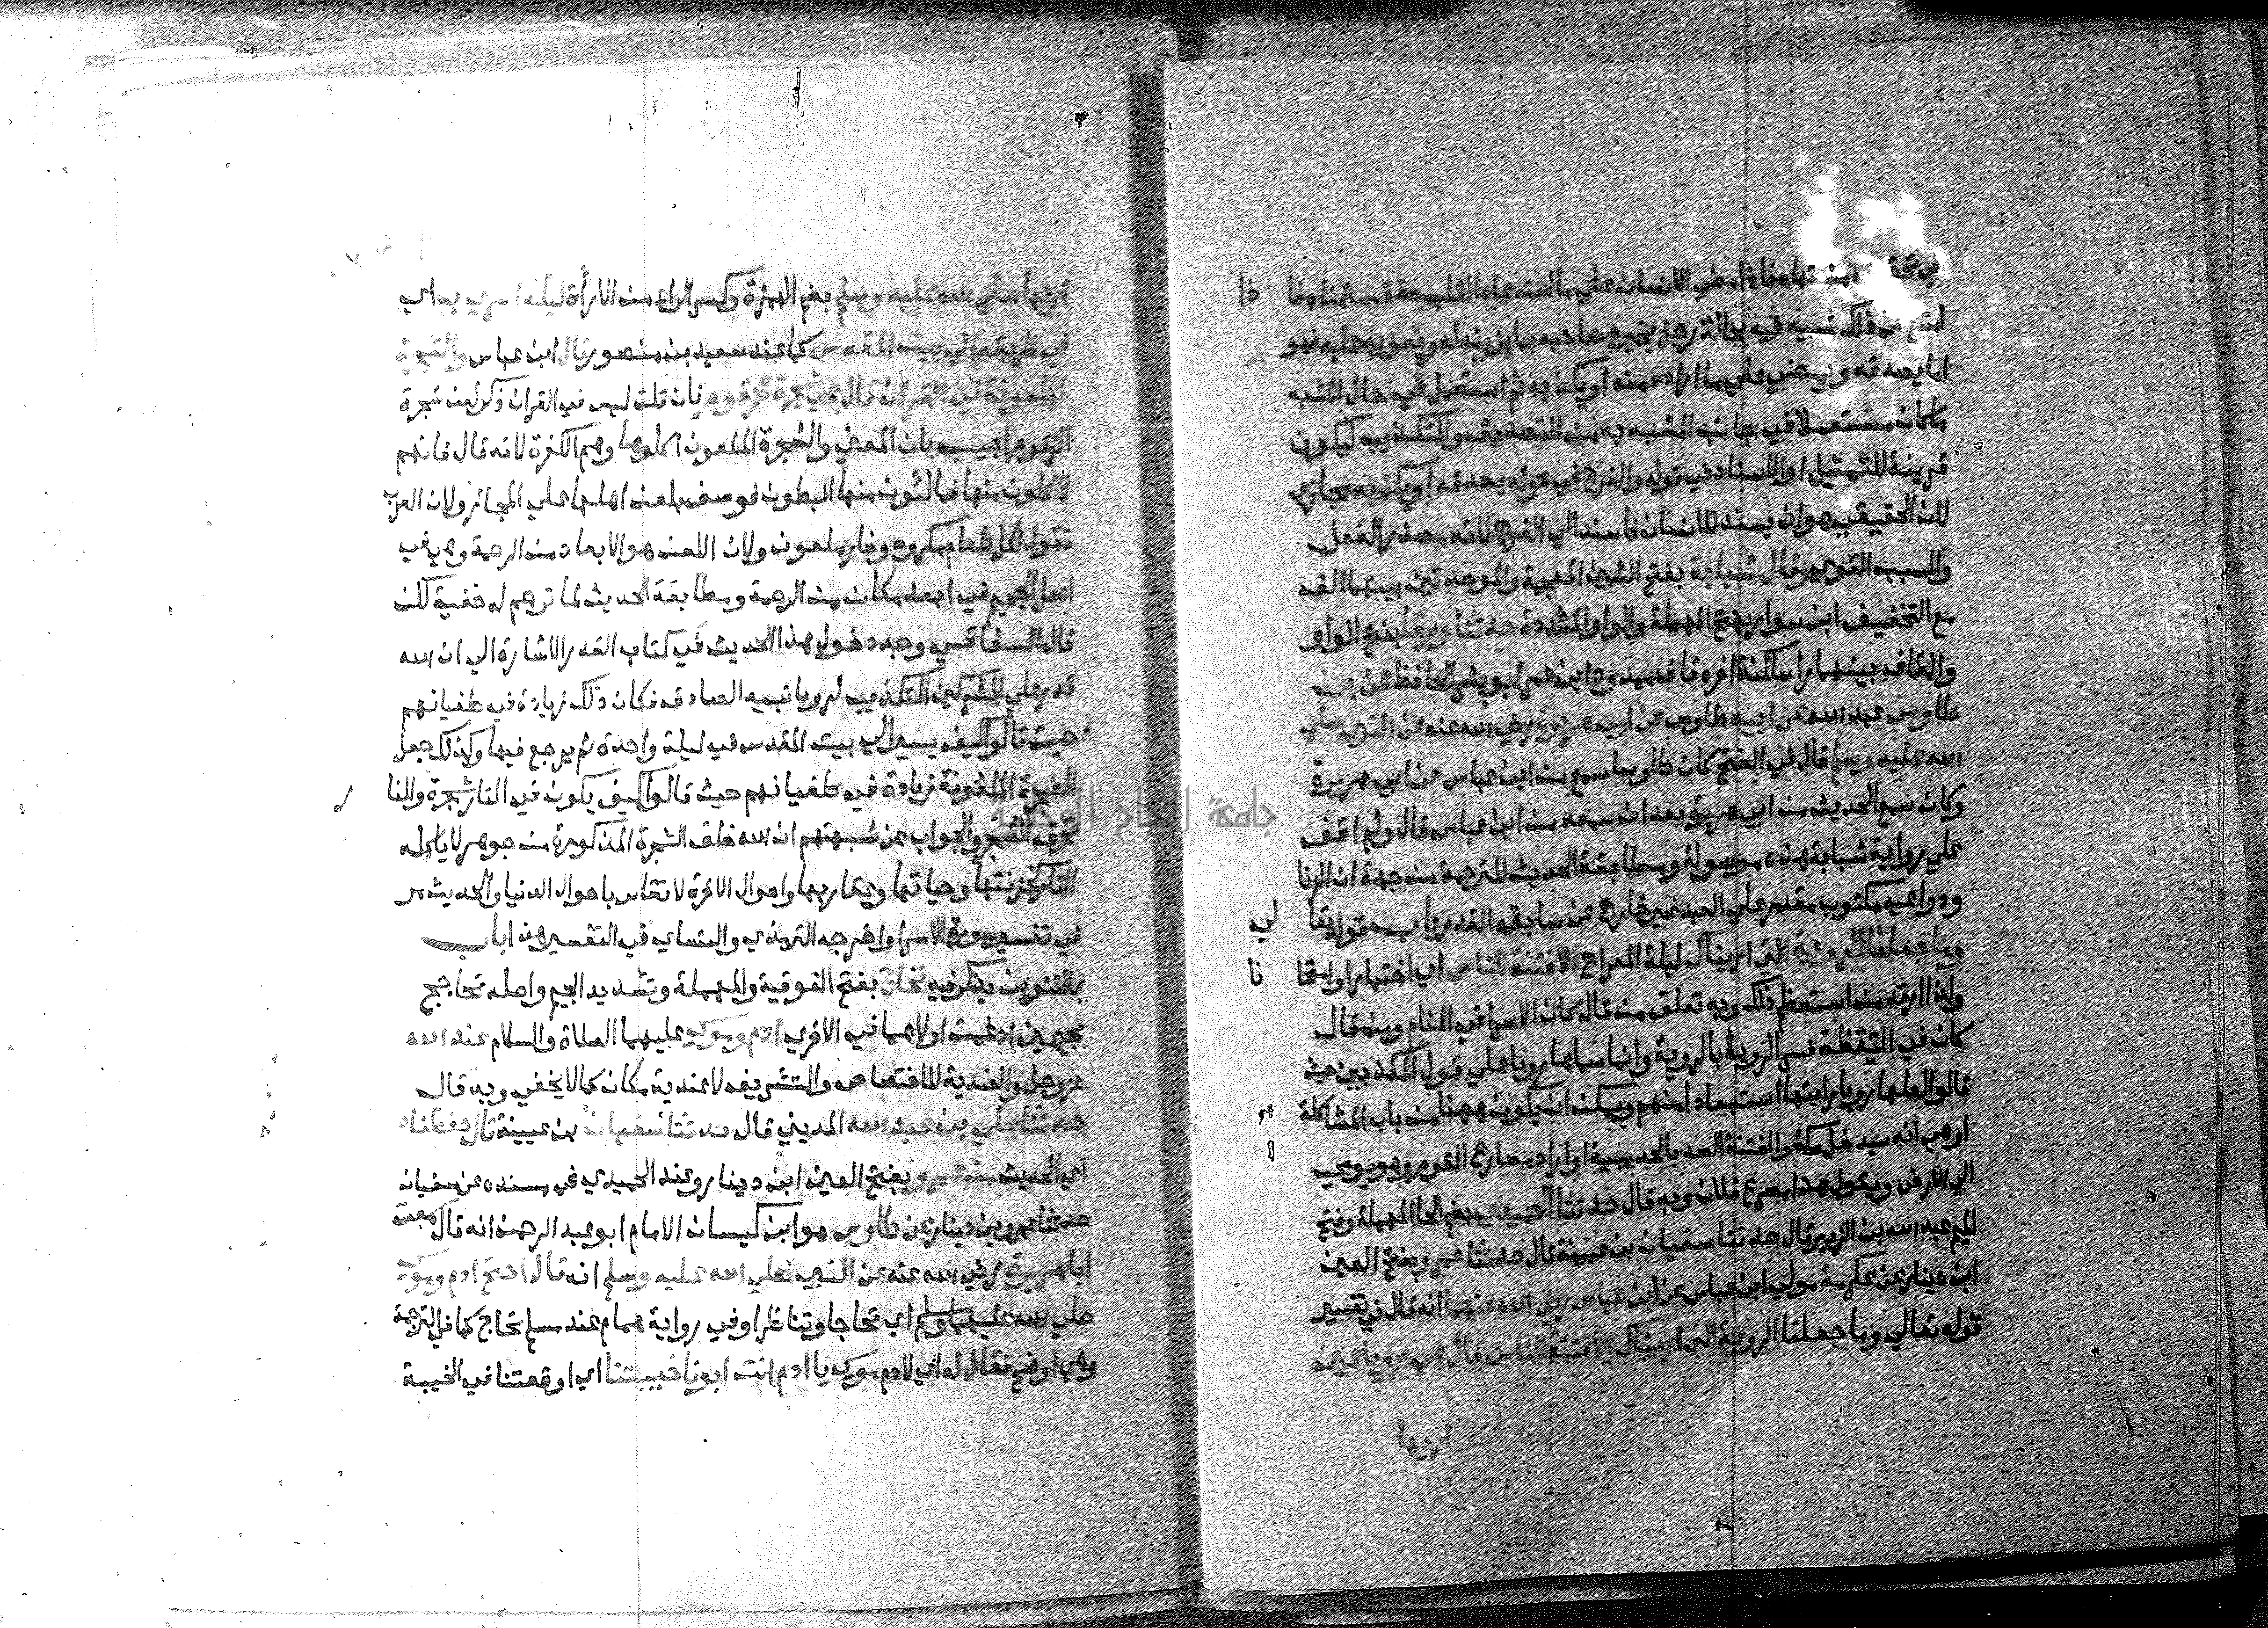 امنه تمناه فاذا مضي الانسان علي ما استدعاه القلب حقق متمناه فا ذا
امتنع من ذلك شبيه فيه بحالة رجل يخبره صاحبه بما يزينه له ويغويه عليه فهو
اما يصدقه ويمضي علي ما اراده منه او يكذبه ثم استعمل في حال المشبه
ما كان مستعملا في جانب المشبه به من التصديق والتكذيب ليكون
قرينة للتمثيل او الاسناد في قوله والفرج في قوله يصدقه او يكذبه مجازي
لان الحقيقي هو ان يسند للانسان فاسند الي الفرج لانه مصدر الفعل
والسبب القوي وقال شبابة بفتح الشين المعجمة والموحدتين بينهما الف
مع التخفيف ابن سوار بفتح المهملة والواو المشددة حدثنا ورقا بفتح الواو
والقاف بينهما را ساكنة اخره قاف ممدود ابن عمر ابو بشر الحافظ عن بن
طاوس عبد الله عن ابيه طاوس عن ابي هريرة رضي الله عنه عن النبي صلي
الله عليه وسلم قال في الفتح كان طاوسا سمع من ابن عباس عن ابي هريرة
وكان سمع الحديث من ابي هريرة بعد ان سمعه من ابن عباس قال ولم اقف
علي رواية شبابة هذه موصولة ومطابقة الحديث للترجمة من جهة ان الزنا
ودواعيه مكتوب مقدر علي العبد غير خارج عن سابق القدر باب قوله تعا لي
وما جعلنا الروية التي اريناك ليلة المعراج الا فتنة للناس اي اختبارا وامتحا نا
ولذا ارتد من استعظم ذلك وبه تعلق من قال كان الاسرا في المنام ومن قال
كان في اليقظة فسر الرويا بالروية وانما سماها رويا علي قول المكذبين حيث
قالوا لعلها رويا رايتها استبعادا منهم ويمكن ان يكون ههنا من باب المشاكلة
او هي انه سيدخل مكة والفتنة الصد بالحديبية او اراد مصارع القوم وهو يومي
الي الارض ويقول هذا مصرع فلان وبه قال حدثنا الحميدي بضم الحا المهملة وفتح
الميم عبد الله بن الزبير قال حدثنا سفيان بن عيينة قال حدثنا عمرو بفتح العين
ابن دينار عن عكرمة مولي ابن عباس عن ابن عباس رضي الله عنهما انه قال في تفسير
قوله تعالي وما جعلنا الروية التي اريناك الا فتنة للناس قال هي رويا عين
اريها
اريها صلي الله عليه وسلم بضم الهمزة وكسر الراء من الاراة ليلة اسري به اي
في طريقه الي بيت المقدس كما عند سعيد بن منصور قال ابن عباس والشجرة
الملعونة في القران قال هي شجرة الزقوم فان قلت ليس في القران ذكر لعن شجرة
الزقوم اجيب بان المعني والشجرة الملعون اكلوها وهم الكفرة لانه قال فانهم
لاكلون منها فمالئون منها البطون فوصف بلعن اهلها علي المجاز ولان العرب
تقول لكل طعام مكروه وضار ملعون ولان اللعن هو الابعاد من الرحمة وهي في
اصل الجحيم في ابعد مكان من الرحمة ومطابقة الحديث لما ترجم له خفية لكن
قال السفاقسي وجه دخول هذا الحديث في كتاب القدر الاشارة الي ان الله
قدر علي المشركين التكذيب لرويا نبيه الصادقه فكان ذلك زيادة في طغيانهم
حيث قالوا كيف يسير الي بيت المقدس في ليلة واحدة ثم يرجع فيها وكذلك جعل
الشجرة الملعونة زيادة في طغيانهم حيث قالوا كيف يكون في النار شجرة والنا ر
تحرق الشجر والجواب عن شبهتهم ان الله خلق الشجرة المذكورة من جوهر لا ياكله
النار كخزنتها وحياتها وعقاربها واحوال الاخرة لا تقاس باحوال الدنيا والحديث مر
في تفسير سورة الاسرا واخرجه الترمذي والنساي في التفسير هذا باب
بالتنوين يذكر فيه تحاج بفتح الفوقية والمهملة وتشديد الجيم واصله تحاجج
بجيمين ادغمت اولاهما في الاخري ادم وموسي عليهما الصلاة والسلام عند الله
عز وجل والعندية للاختصاص والتشريف لا عندية مكان كما لا يخفي وبه قال
حدثنا علي بن عبد الله المديني قال حدثنا سفيان بن عيينة قال حفظناه
اي الحديث من عمرو بفتح العين ابن دينار وعند الحميدي في مسنده عن سفيان
حدثنا عمرو بن دينار عن طاوس هو ابن كيسان الامام ابو عبد الرحمن انه قال سمعت
ابا هريرة رضي الله عنه عن النبي صلي الله عليه وسلم انه قال احتج ادم وموسي
صلي الله عليهما وسلم اي تحاجا وتناظرا وفي رواية همام عند مسلم تحاج كما في الترجمة
وهي اوضح فقال له اي لادم موسي يا ادم انت ابونا خيبتنا اي اوقعتنا في الخيبة
جامعة النجاح الوطنية